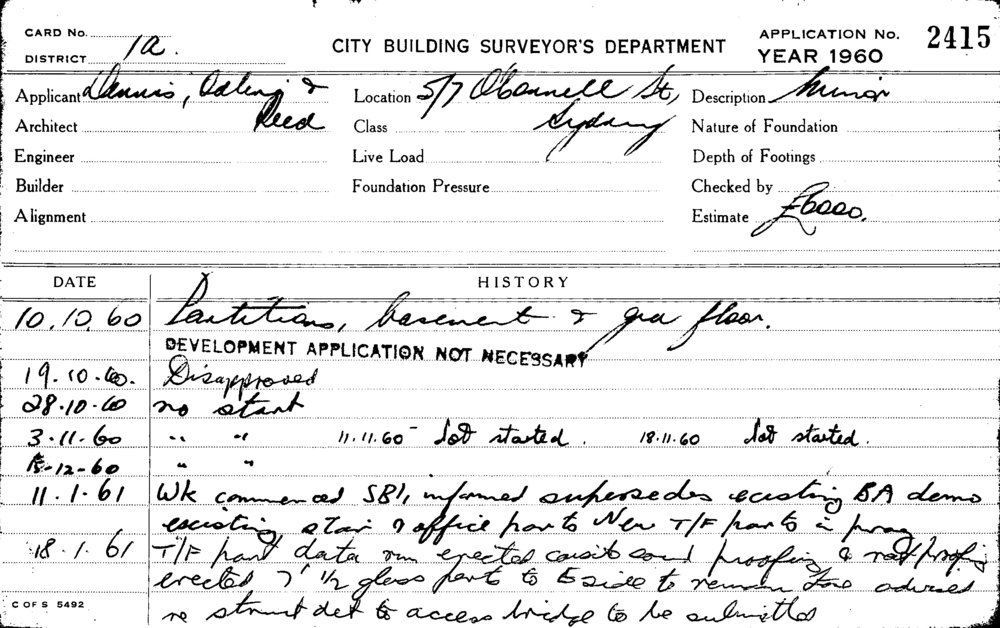 CARD No.
DISTRICT 1a.
CITY BUILDING SURVEYOR'S DEPARTMENT
APPLICATION No. 2415
YEAR 1960
Applicant Dennis, Osling &
Reed
Location 5/7 O'Connell St,
Sydney
Description Minor
Architect
Class
Nature of Foundation
Engineer
Live Load
Depth of Footings
Builder
Foundation Pressure
Checked by
Alignment
Estimate £6000.
DATE HISTORY
10.10.60 Partitions, basement & grd floor.
DEVELOPMENT APPLICATION NOT NECESSARY
19.10.60. Disapproved
28.10.60 no start
3.11.60 " " 11.11.60 Not started. 18.11.60 Not started.
-12-60 " "
11.1.61 Wk commenced SBI, informed supersedes existing BA demo
existing stair & office parts New T/F parts in prog
18.1.61 T/F part data rm erected sound proofing & proofing
erected 7' ½ glass parts to E side to remain advised
re struct det to access bridge to be submitted
C OF S 5492